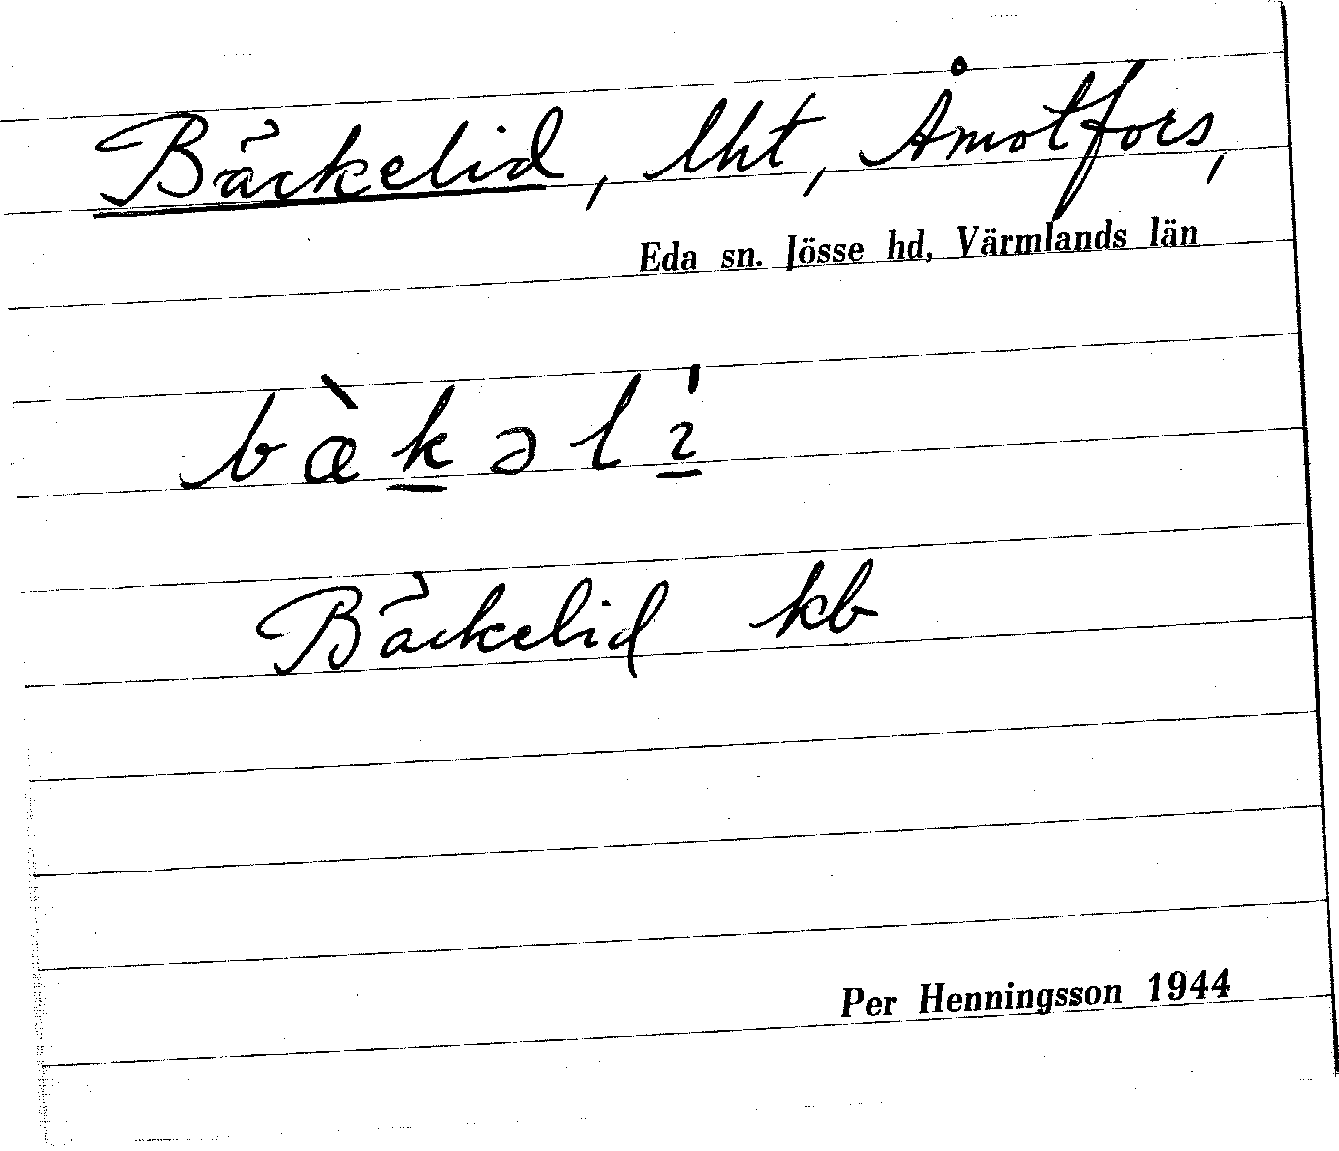 Bäckelid, lht, Åmotfors,
Eda sn. Jösse hd, Värmlands län
bæ̀kəlı̍
Bäckelid kb
Per Henningsson 1944